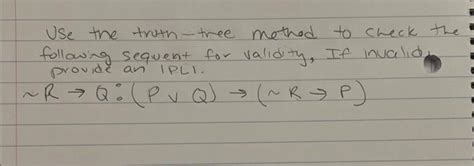 Use the truth-tree method to check the
following sequent for validity, If invalid,
provide an IPLI.
~R → Q : (P ∨ Q) → (~R → P)